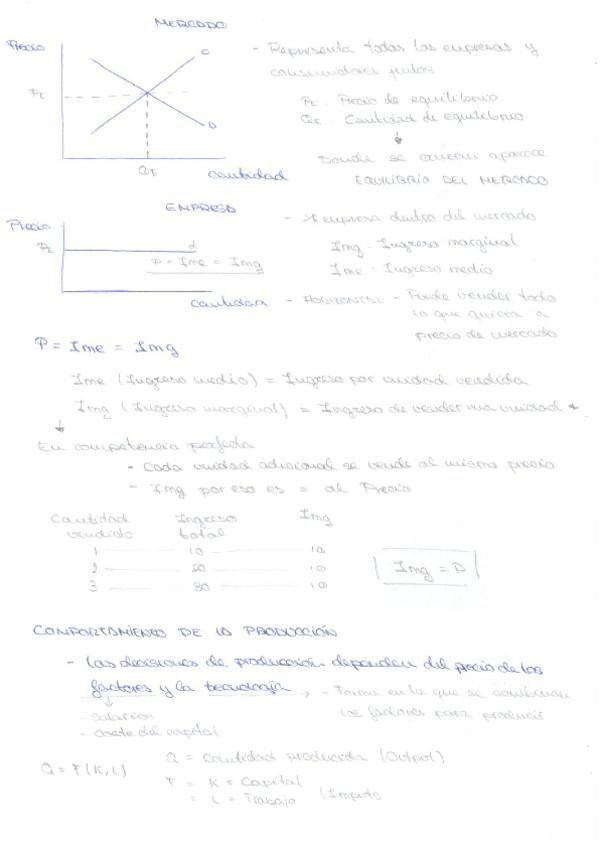 MERCADO
Precio
O
PE
D
QE
cantidad
- Representa todas las empresas y
consumidores juntos
PE: Precio de equilibrio
QE: Cantidad de equilibrio
Donde se cruzan aparece
EQUILIBRIO DEL MERCADO
EMPRESA
Precio
PE
d
P = Ime = Img
cantidad
- 1 empresa dentro del mercado
Img: Ingreso marginal
Ime: Ingreso medio
- HORIZONTAL - Puede vender todo
lo que quiera a
precio de mercado
P = Ime = Img
Ime (Ingreso medio) = Ingreso por unidad vendida
Img (Ingreso marginal) = Ingreso de vender una unidad +
En competencia perfecta
- Cada unidad adicional se vende al mismo precio
- Img por eso es = al Precio
Cantidad Ingreso Img
vendida total
1 10 10
2 20 10
3 30 10
Img = P
COMPORTAMIENTO DE LA PRODUCCIÓN
- Las decisiones de producción dependen del precio de los
factores y la tecnología → - Forma en la que se combinan
los factores para producir
- Salarios
- Coste del capital
Q = F(K,L)
Q = Cantidad producida (Output)
F = K = Capital
= L = Trabajo (Inputs